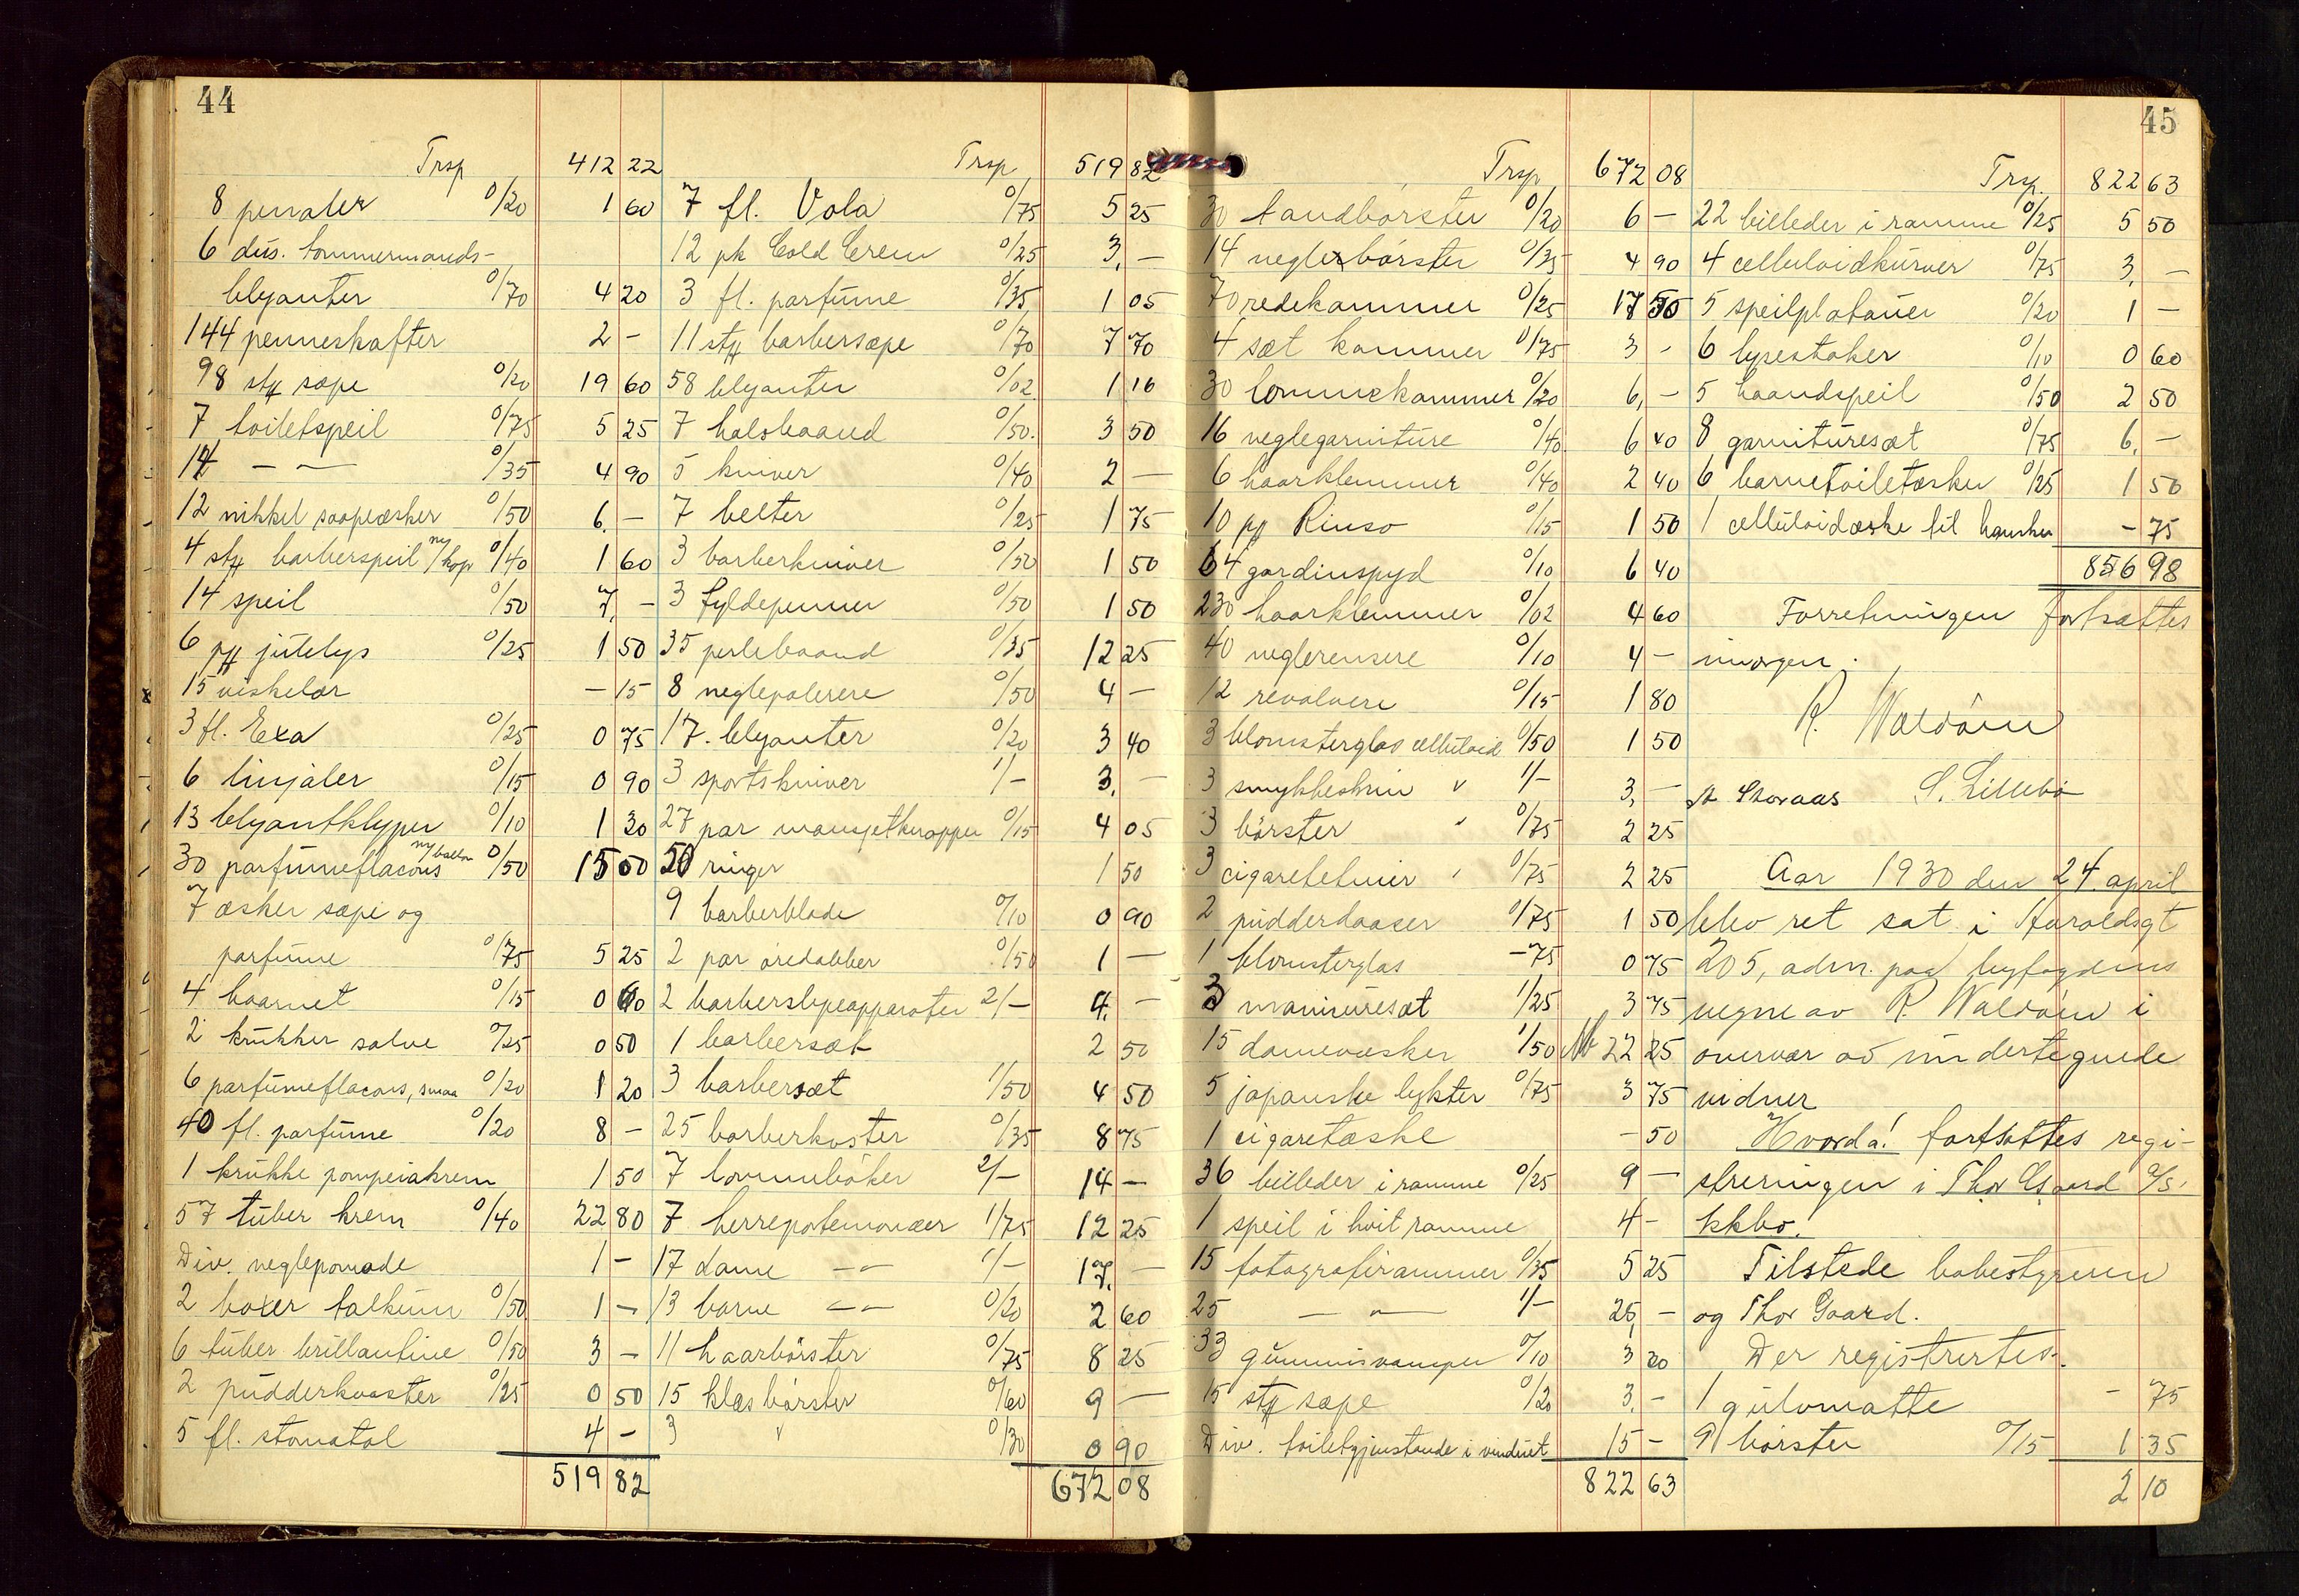 44
Trsp 412 22
8 penaler 0/20 1 60
6 dus. tømmermands-
blyanter 0/70 4 20
144 penneskafter 2 -
98 stk sæpe 0/20 19 60
7 toiletspeil 0/75 5 25
14 - - 0/35 4 90
12 nikkel saapeæsker 0/50 6. -
4 stk barberspeil m/kop 0/40 1 60
14 speil 0/50 7, -
6 pk julelys 0/25 1 50
15 viskelær - 15
3 fl. Exa 0/25 0 75
6 linjaler 0/15 0 90
13 blyantklyper 0/10 1 30
30 parfumeflacons m/ballon 0/50 15 00
7 æsker sæpe og
parfume 0/75 5 25
4 haarnet 0/15 0 60
2 krukker salve 0/25 0 50
6 parfumeflacons, smaa 0/20 1 20
40 fl. parfume 0/20 8 -
1 krukke pompeiakrem 1 50
57 tuber krem 0/40 22 80
Div. neglepomade 1 -
2 boxer talkum 0/50 1 -
6 tuber brillantine 0/50 3 -
2 pudderkvaster 0/25 0 50
5 fl. stomatol 4 -
519 82
Trsp 519 82
7 fl. Vola 0/75 5 25
12 pk Cold Crem 0/25 3, -
3 fl. parfume 0/35 1 05
11 stk barbersæpe 0/70 7 70
58 blyanter 0/02 1 16
7 halsbaand 0/50. 3 50
5 kniver 0/40 2 -
7 belter 0/25 1 75
3 barberkniver 0/50 1 50
3 fyldepenner 0/50 1 50
35 perlebaand 0/35 12 25
8 neglepolerere 0/50 4 -
17. blyanter 0/20 3 40
3 sportskniver 1/- 3. -
27 par mansjetknapper 0/15 4 05
50 ringer 1 50
9 barberblade 0/10 0 90
2 par øredobber 0/50 1 -
2 barberslipeapparater 2/- 4. -
1 barbersæt 2 50
3 barbersæt 1/50 4 50
25 barberkoster 0/35 8 75
7 lommebøker 2/- 14 -
7 herreportemonæer 1/75 12 25
17 dame - - 1/- 17. -
13 barne - - 0/20 2 60
11 haarbørster 0/75 8 25
15 klæsbørster 0/60 9 -
3 " 0/30 0 90
672 08
Trsp 672 08
30 tandbørster 0/20 6 -
14 neglebørster 0/35 4 90
70 redekammer 0/25 17 50
4 sæt kammer 0/75 3 -
30 lommekammer 0/20 6, -
16 neglegarniture 0/40 6 40
6 haarklemmer 0/40 2 40
10 pk Rinso 0/15 1 50
64 gardinspyd 0/10 6 40
230 haarklemmer 0/02 4 60
40 neglerensere 0/10 4 -
12 revolvere 0/15 1 80
3 blomsterglas celluloid 0/50 1 50
3 smykkeskrin " 1/- 3, -
3 børster " 0/75 2 25
3 cigaretetuier " 0/75 2 25
2 pudderdaaser 0/75 1 50
1 blomsterglas -75 0 75
3 manicuresæt 1/25 3 75
15 damevæsker 1/50 22 25
5 japanske lykter 0/75 3 75
1 cigaretæske - 50
36 billeder i ramme 0/25 9 -
1 speil i hvit ramme 4 -
15 fotografirammer 0/35 5 25
25 - - 1/- 25, -
33 gummisvamper 0/10 3 30
15 stk sæpe 0/20 3. -
Div. toiletgjenstande i vinduet 15 -
822 63
45
Trsp. 822 63
22 billeder i ramme 0/25 5 50
4 celluloidkurver 0/75 3, -
5 speilplatauer 0/20 1 -
6 lysestaker 0/10 0 60
5 haandspeil 0/50 2 50
8 garnituresæt 0/75 6. -
6 barnetoiletæsker 0/25 1 50
1 celluloidæske til hansker - 75
856 98
Forretningen fortsættes
imorgen.
R. Waldöm
A Storaas S. Lillebö
Aar 1930 den 24. april
blev ret sat i Haraldsgt
205, adm. paa byfogdens
vegne av R. Waldöm i
overvær av undertegnede
vidner
Hvorda! fortsattes regi-
streringen i Thor Gaard A/S.
kkbo.
Tilstede bobestyreren
og Thor Gaard.
Der registrertes.
1 gulvmatte - 75
9 børster 0/15 1 35
2 10